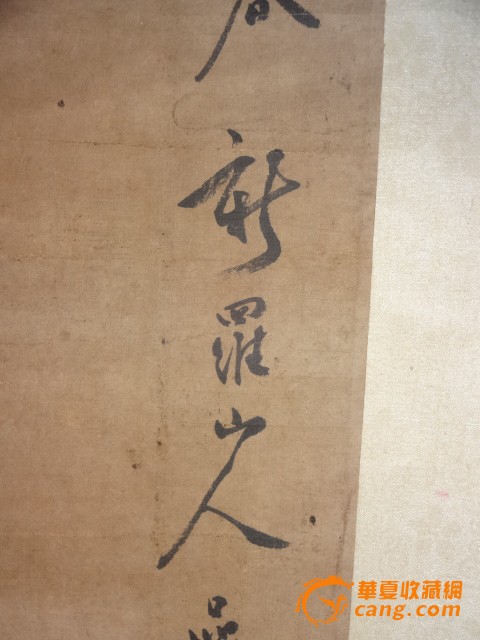 春新羅山人
華夏收藏網
cang.com